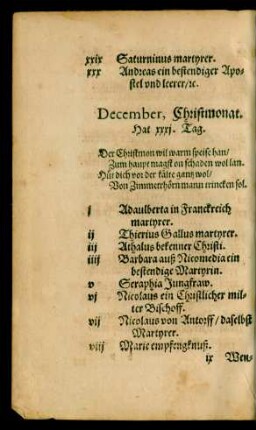 xxix Saturninus martyrer.
xxx Andreas ein bestendiger Apo-
stel vnd leerer/ꝛc.
December, Christmonat.
Hat xxxj. Tag.
Der Christmon wil warm speise han/
Zum haupt magst on schaden wol lan.
Hüt dich vor der kälte gantz wol/
Von Zimmetrhörn mann trincken sol.
j Adaulberta in Franckreich
martyrer.
ij Thierius Gallus martyrer.
iij Athalus bekenner Christi.
iiij Barbara auß Nicomedia ein
bestendige Martyrin.
v Seraphia Jungfraw.
vj Nicolaus ein Christlicher mil-
ter Bischoff.
vij Nicolaus von Antorff/ daselbst
Martyrer.
viij Marie empfengknuß.
ix Wen-